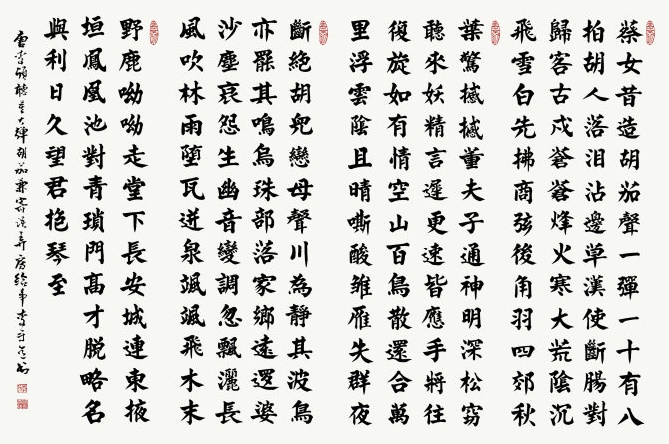 蔡女昔造胡笳聲一彈一十有八
拍胡人落泪沾邊草漢使斷腸對
歸客古戍蒼蒼烽火寒大荒陰沉
飛雪白先拂商弦後角羽四郊秋
葉驚撼撼董夫子通神明深松竊
聽來妖精言遲更速皆應手將往
復旋如有情空山百鳥散還合萬
里浮雲陰且晴嘶酸雛雁失群夜
斷絕胡兒戀母聲川為靜其波鳥
亦罷其鳴烏珠部落家鄉遠邏婆
沙塵哀怨生幽音變調忽飄灑長
風吹林雨墮瓦迸泉颯颯飛木末
野鹿呦呦走堂下長安城連東掖
垣鳳凰池對青瑣門高才脫略名
與利日久望君抱琴至
唐李頎聽董大彈胡笳兼寄語弄房給事李